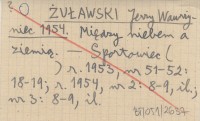 ŻUŁAWSKI Jerzy Wawrzy-
niec 1954. Między niebem a
ziemią. — Sportowiec (
) r. 1953, nr 51-52:
18-19; r. 1954, nr 2: 8-9, il.;
nr 3: 8-9, il.